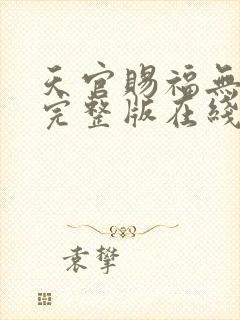 天官賜福無
完整版在綫
袁攀